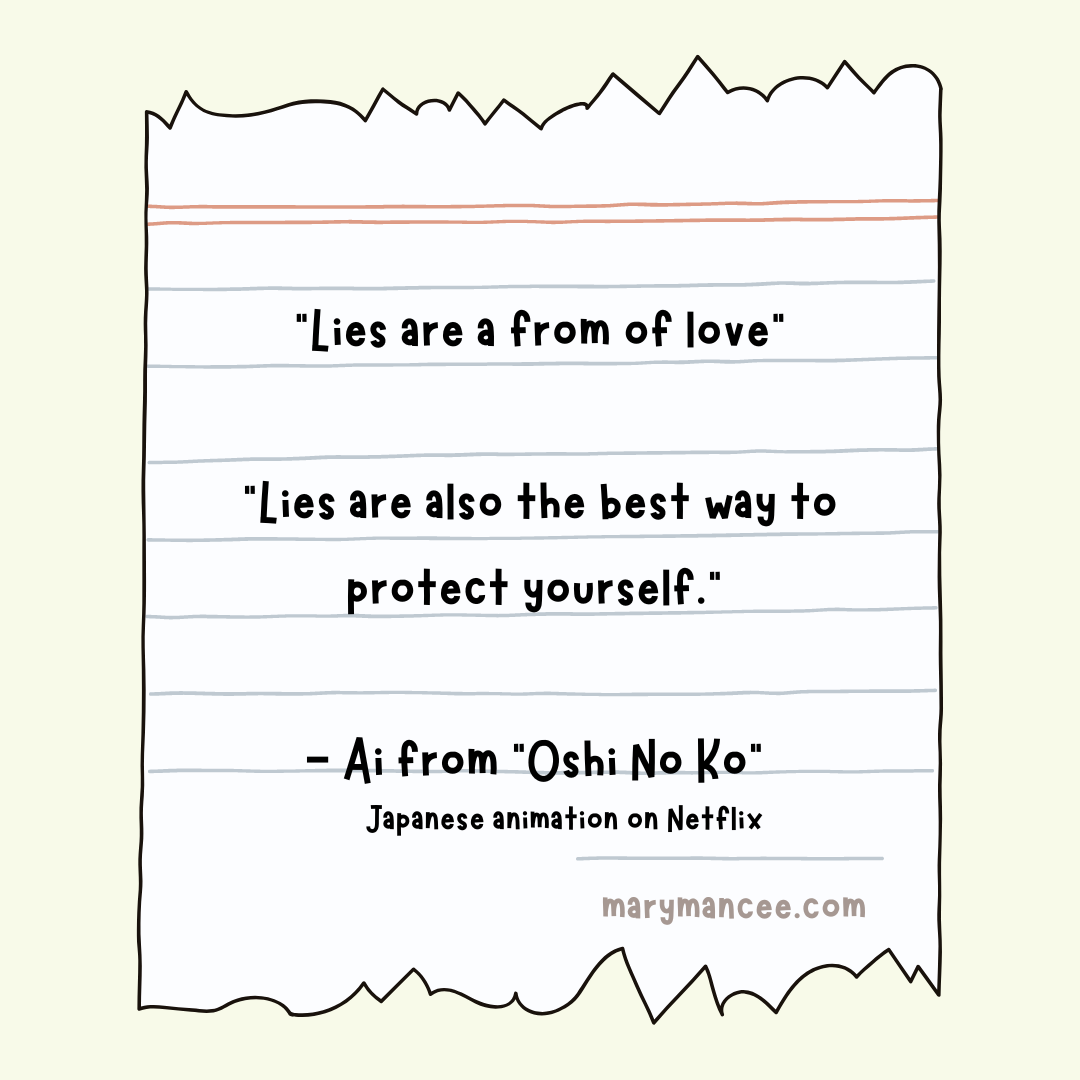 "Lies are a from of love"
"Lies are also the best way to
protect yourself."
- Ai from "Oshi No Ko"
Japanese animation on Netflix
marymancee.com